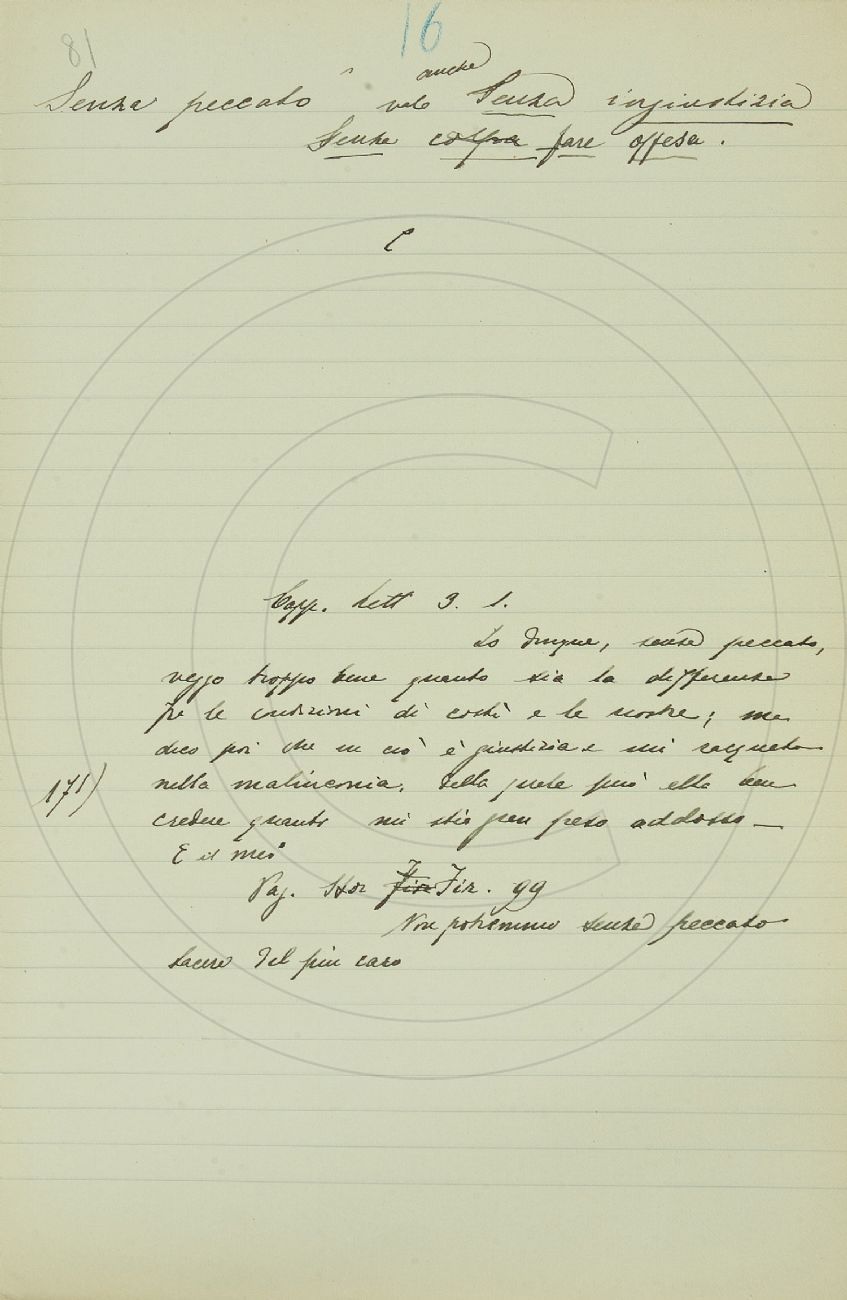 81
16
anche
Senza peccato vale Senza ingiustizia
Senza colpa fare offesa.
C
Capp. Lett 3. 1.
Io dunque, senza peccato,
veggo troppo bene quanto sia la differenza
fra le condizioni di costì e le nostre; ma
dico poi che in ciò è giustizia e mi racqueto
nella malinconia. Della quale può ella ben
171)
credere quanto mi stia gran peso addosso —
E il mes
Pag. Stor Fior Fir. 99
Non potremmo senza peccato
tacere del più caro